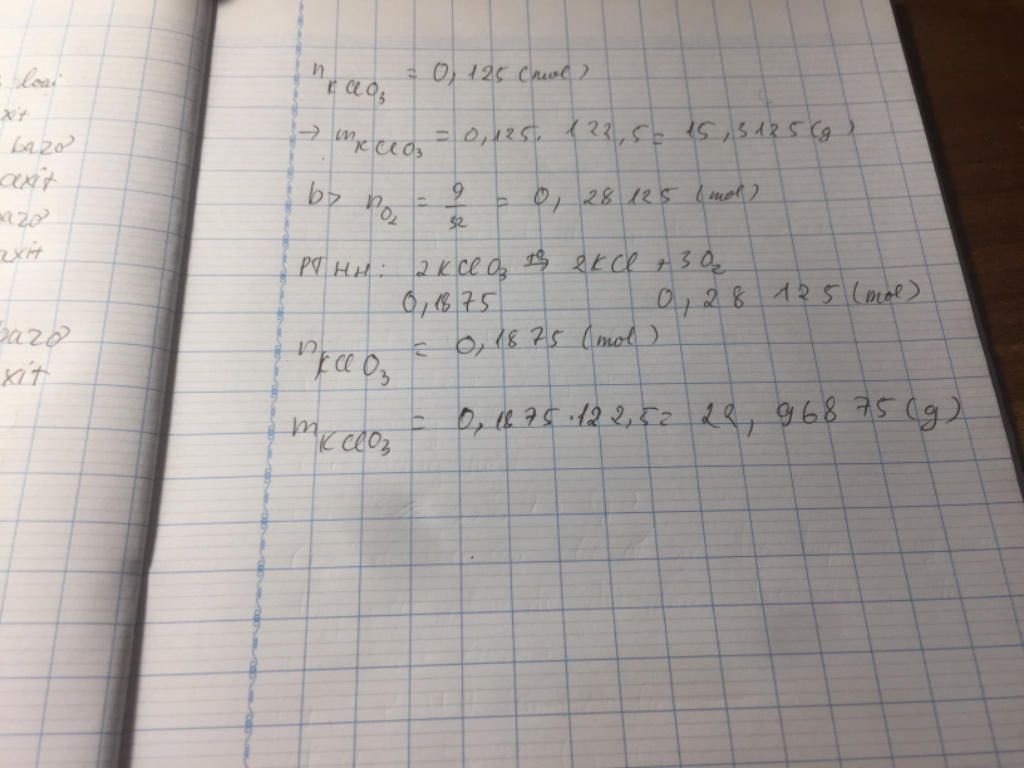 loại
xit
bazơ
axit
bazơ
axit
bazơ
xit
n KClO3 = 0,125 (mol)
→ m KClO3 = 0,125. 122,5 = 15,3125 (g)
b> n O2 = 9/32 = 0,28125 (mol)
PTHH: 2KClO3 t°→ 2KCl + 3O2
0,1875 0,28125 (mol)
n KClO3 = 0,1875 (mol)
m KClO3 = 0,1875.122,5= 22,96875 (g)